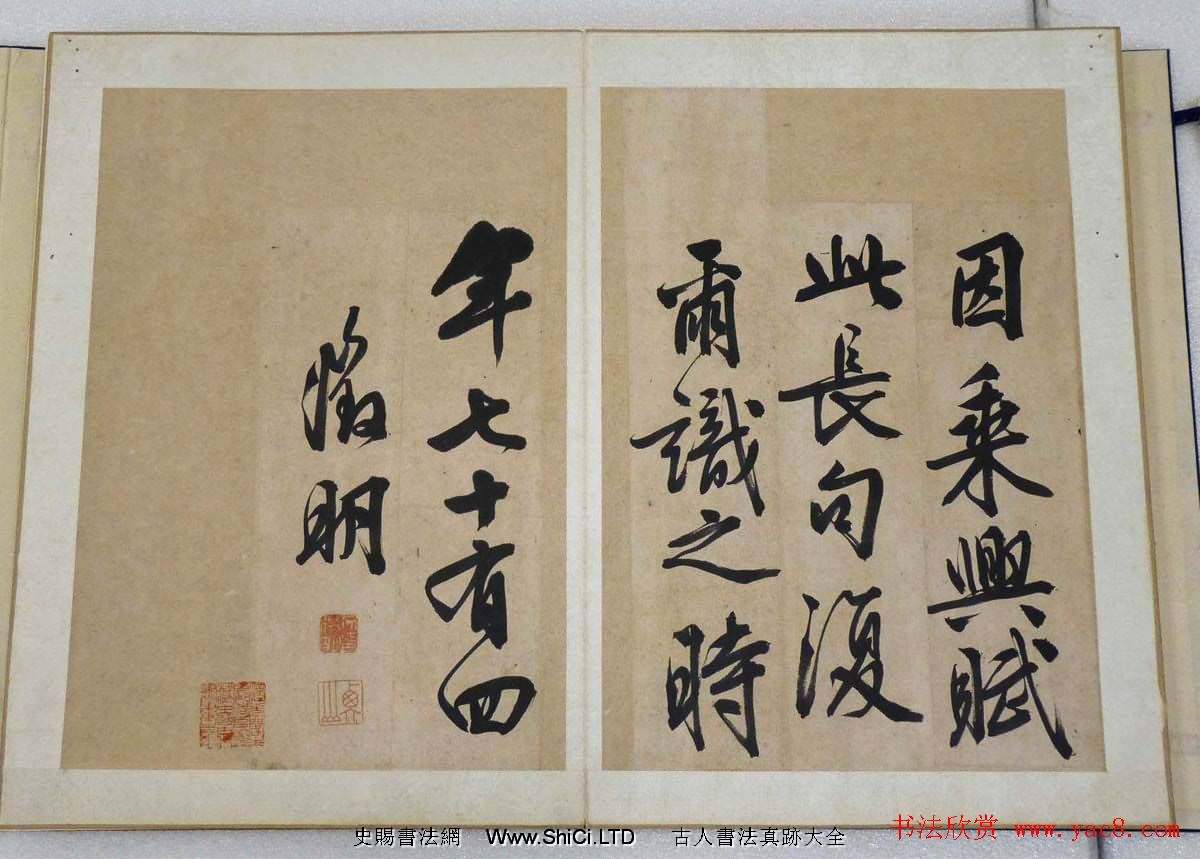 因乘興賦
此長句復
爾識之時
年七十有四
徵明
史賜書法網 Www.ShiCi.LTD 古人書法真跡大全
书法欣赏 www.yac8.com